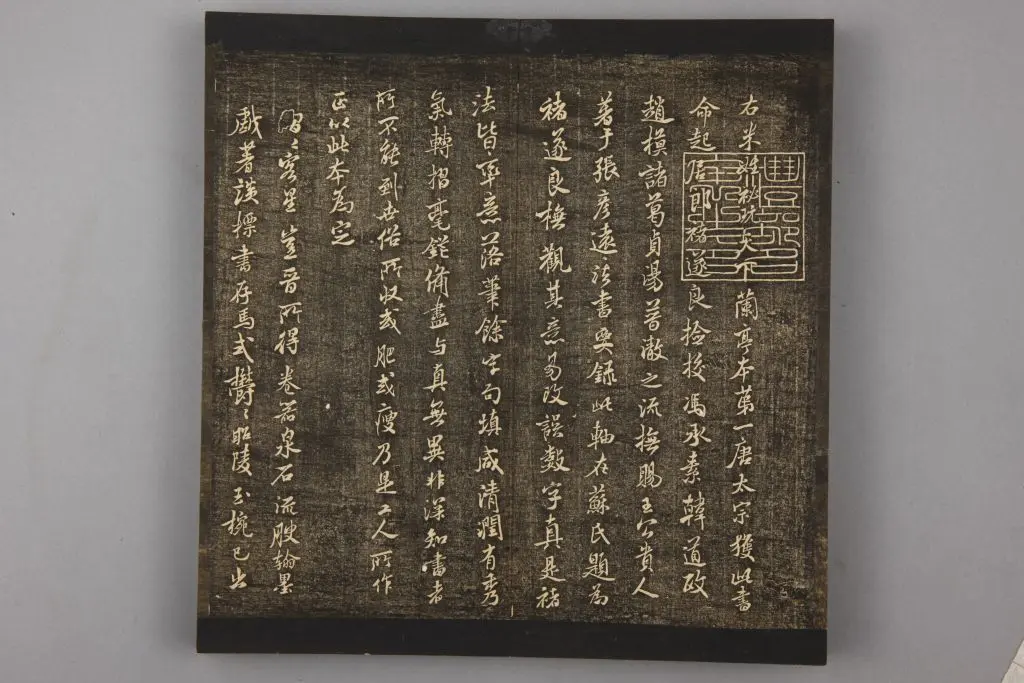 右米姓秘玩天下蘭亭本第一唐太宗獲此書
命起居郎褚遂良檢校馮承素韓道政
趙模諸葛貞湯普澈之流撫賜王公貴人
著于張彥遠法書要錄此軸在蘇氏題為
褚遂良撫觀其意易改誤數字真是褚
法皆率意落筆餘字勾填咸清潤有秀
氣轉摺毫鋩備盡与真無異非深知書者
所不能到世俗所収或肥或瘦乃是工人所作
正以此本為定
客星豈晉所得卷器泉石流腴翰墨
戲著談標書存馬式鬱〻昭陵玉椀已出